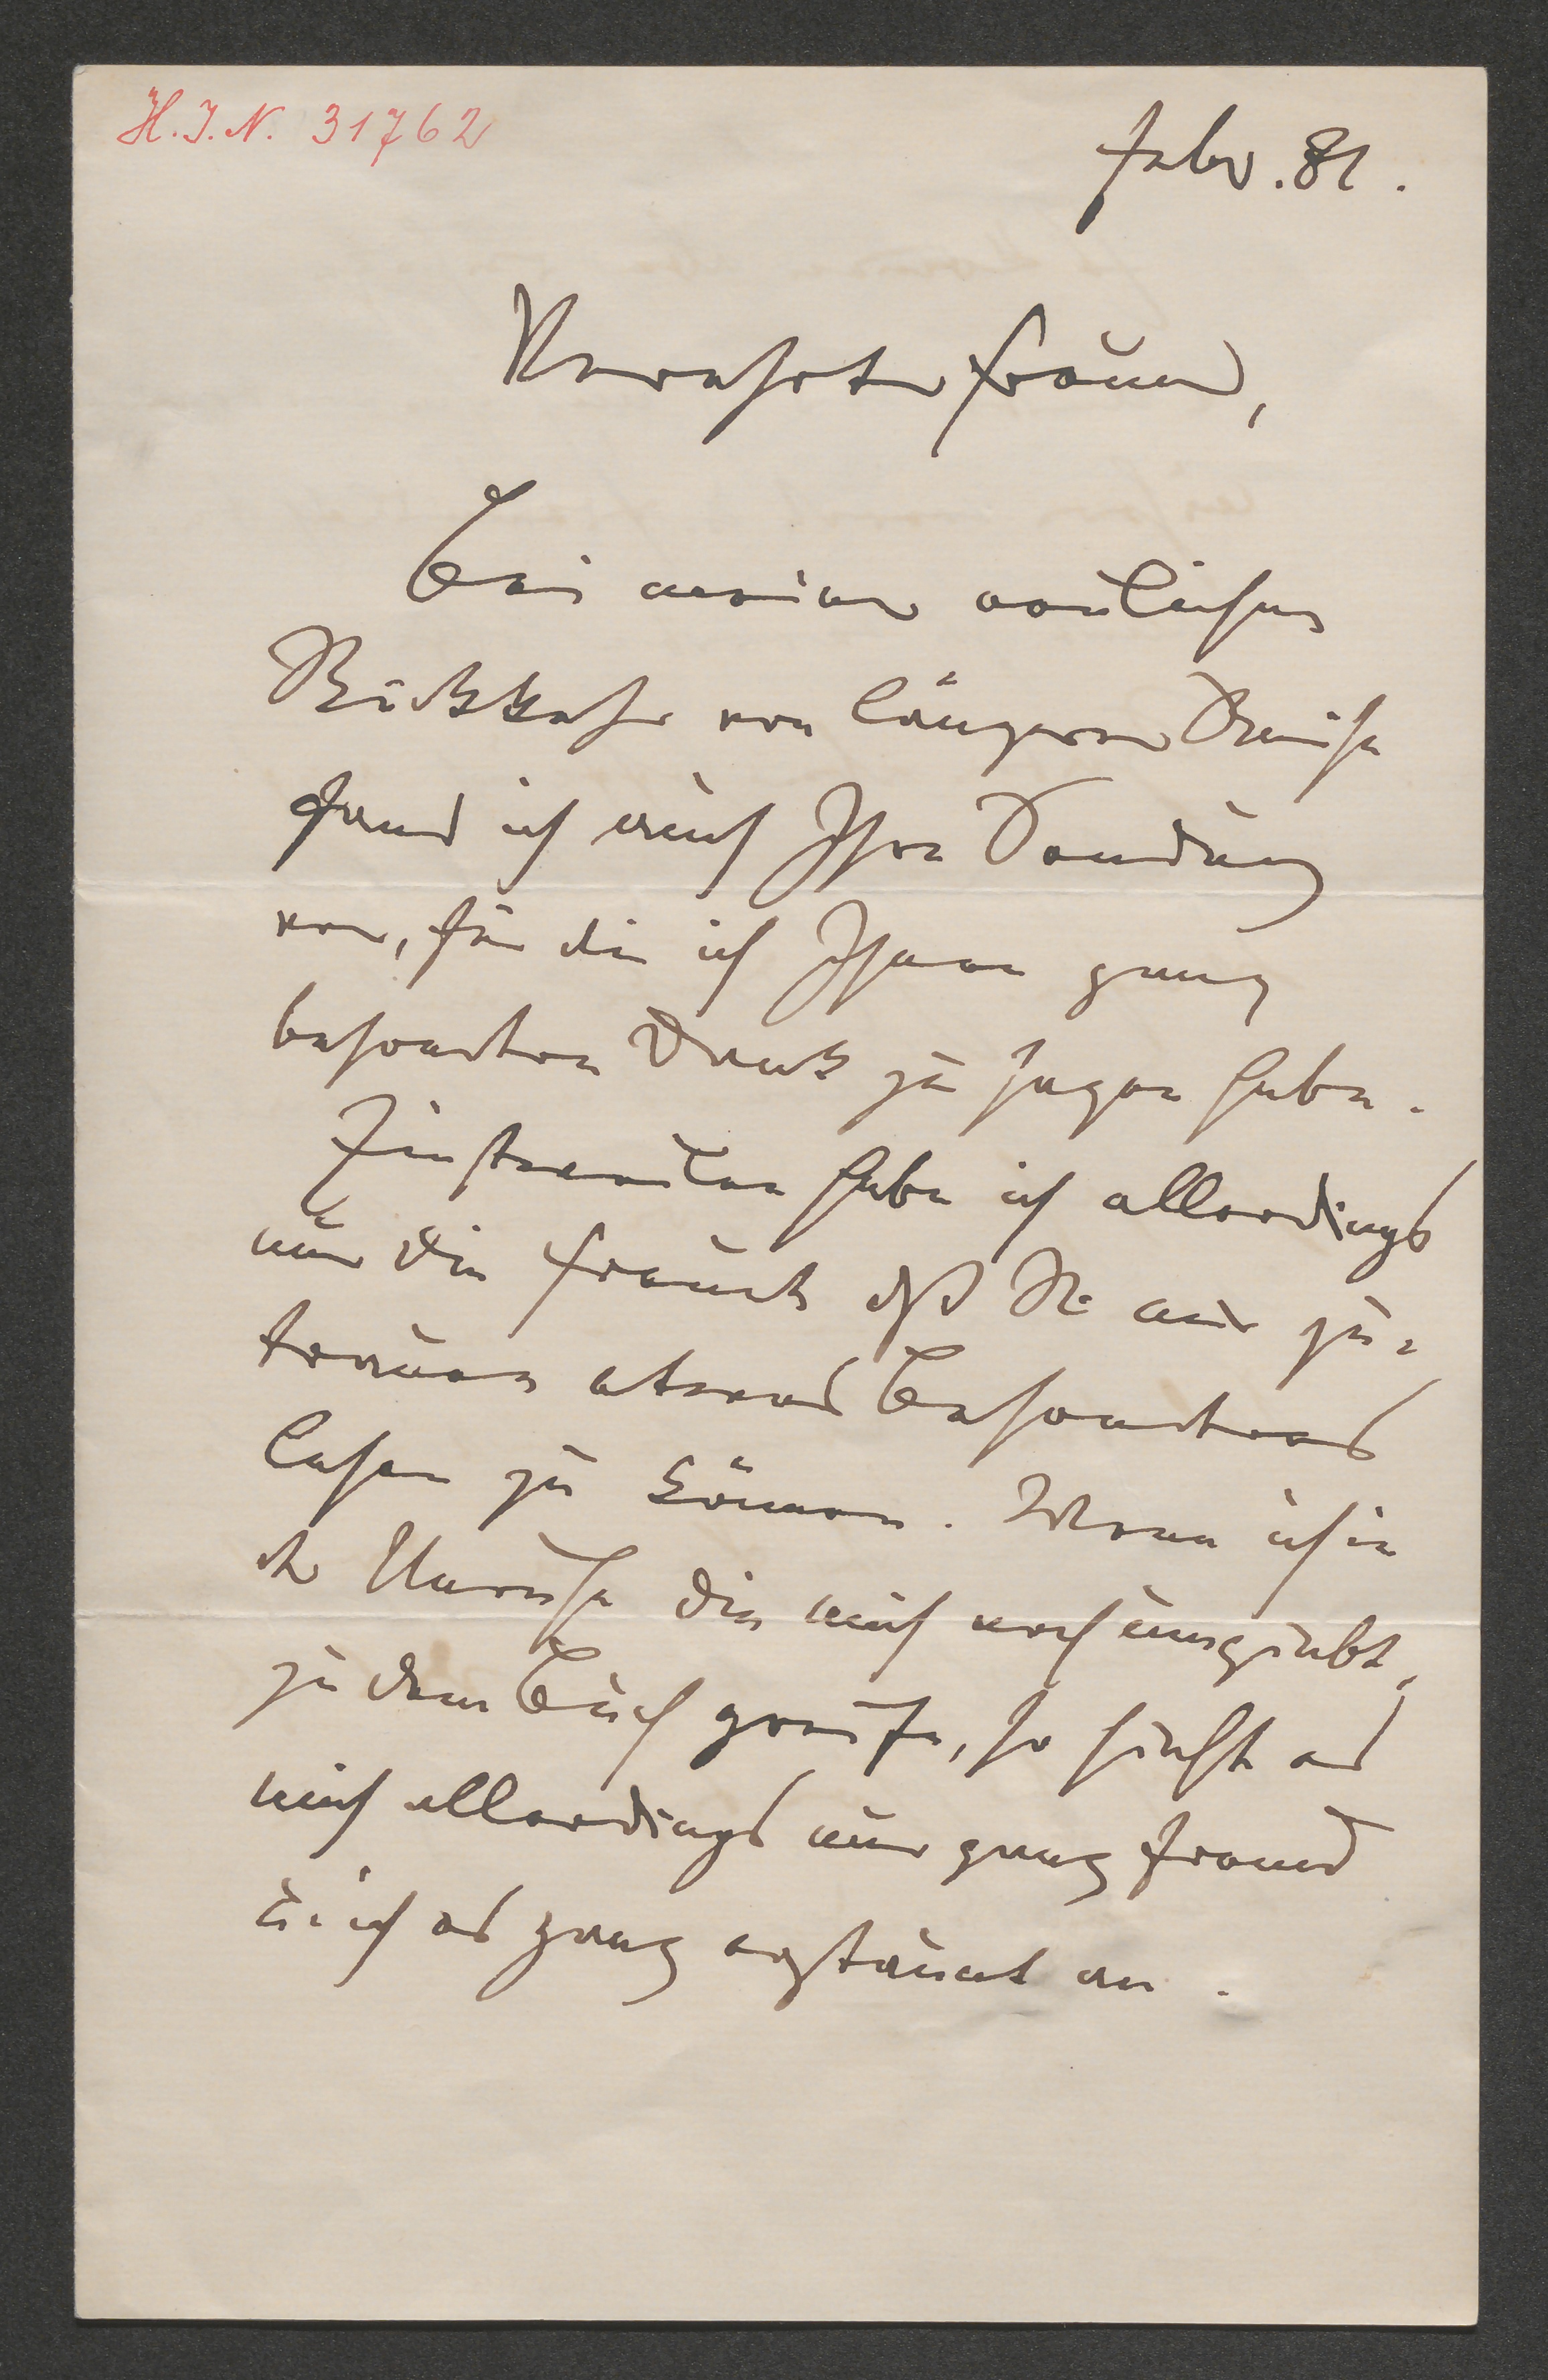 H. I. N. 31762
Febr. 81.
Verehrter Freund,
Bei meiner neulichen
Rückkehr von längerer Reise
fand ich auch Ihre Sendung
vor, für die ich Ihnen ganz
besondern Dank zu sagen habe.
Einstweilen habe ich allerdings
nur die Freude daß Sie mir zu-
trauen etwas Besonderes
lesen zu können. Wenn ich in
der Unruhe die mich noch umgiebt,
zu dem Buch greife, so sieht es
mich allerdings nur ganz fremd
u. ich es ganz erstaunt an.